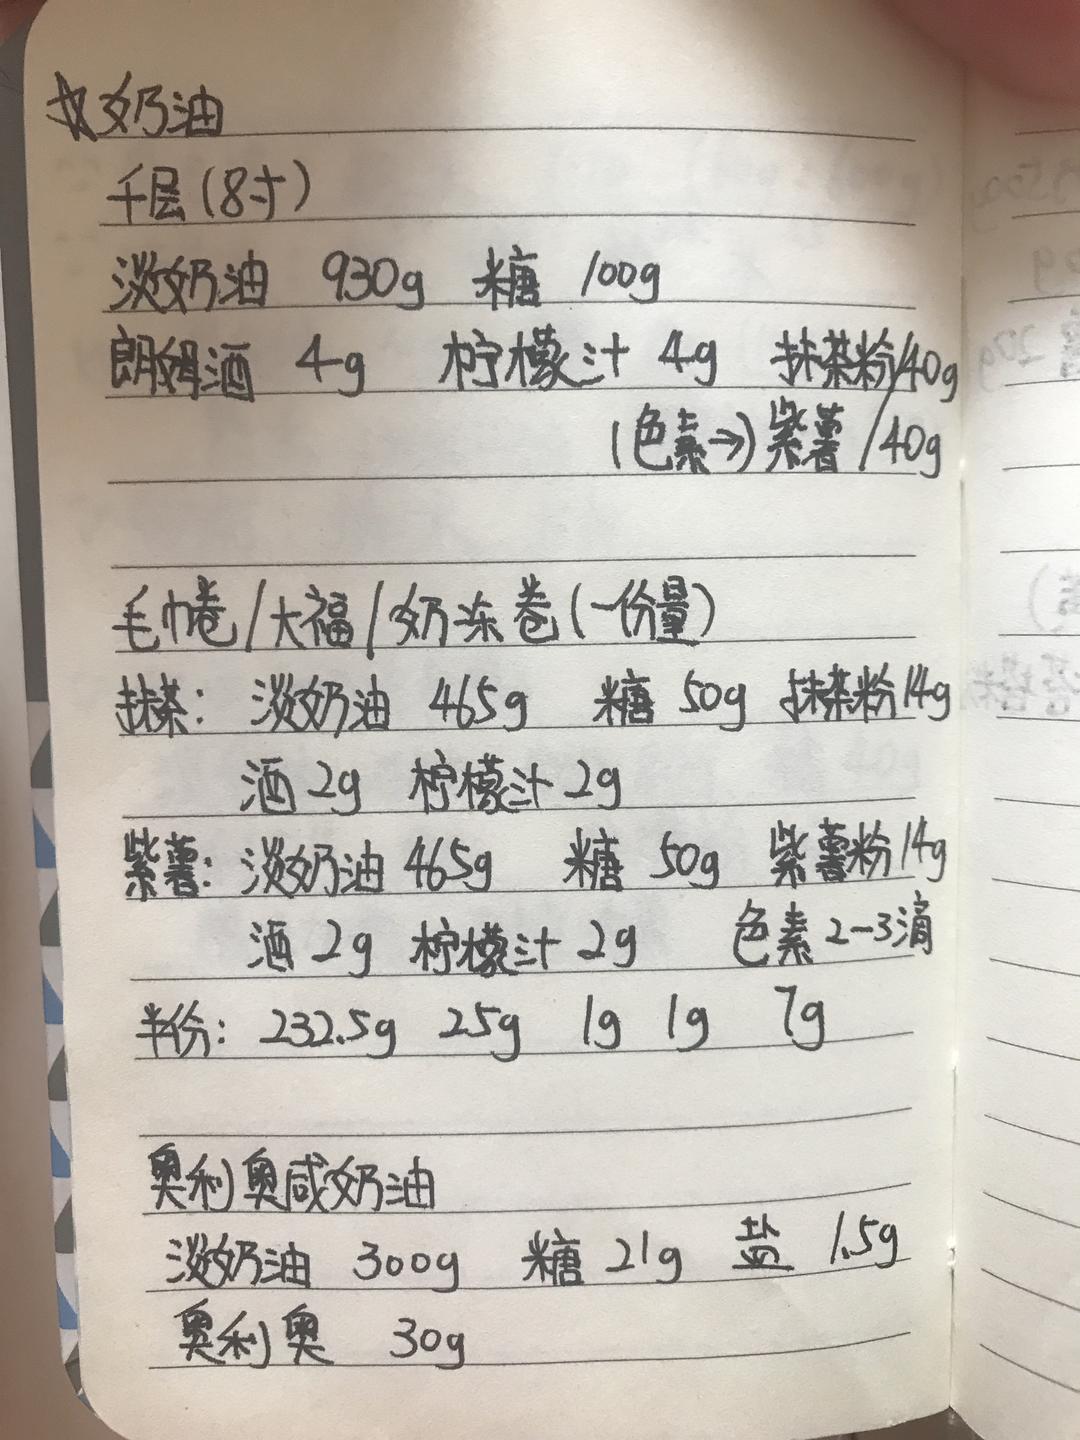 ☆奶油
千层(8寸)
淡奶油 930g 糖 100g
朗姆酒 4g 柠檬汁 4g 抹茶粉/40g
(色素→)紫薯/40g
毛巾卷/大福/奶冻卷(一份量)
抹茶: 淡奶油 465g 糖 50g 抹茶粉 14g
酒 2g 柠檬汁 2g
紫薯: 淡奶油 465g 糖 50g 紫薯粉 14g
酒 2g 柠檬汁 2g 色素 2-3滴
半份: 232.5g 25g 1g 1g 7g
奥利奥咸奶油
淡奶油 300g 糖 21g 盐 1.5g
奥利奥 30g